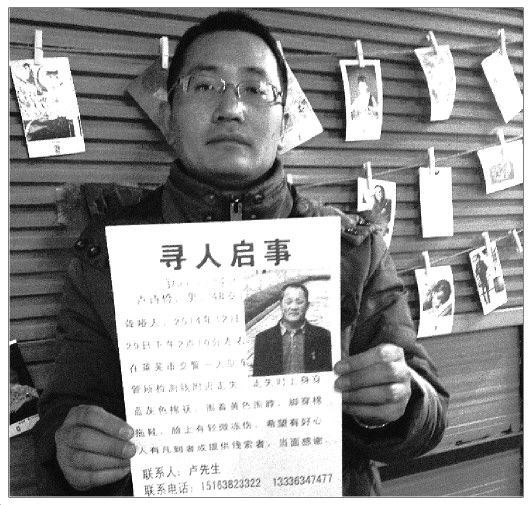 寻人启事
卢诗俭，男，48岁
聋哑人，2014年12月
29日下午2点10分左右
在莱芜市交警一大队车
管所检测线附近走失，走失时上身穿
蓝灰色棉袄，围着黄色围脖，脚穿棉
拖鞋，脸上有轻微冻伤，希望有好心
人有见到者或提供线索者，当面感谢。
联系人：卢先生
联系电话：15163823322 13336347477